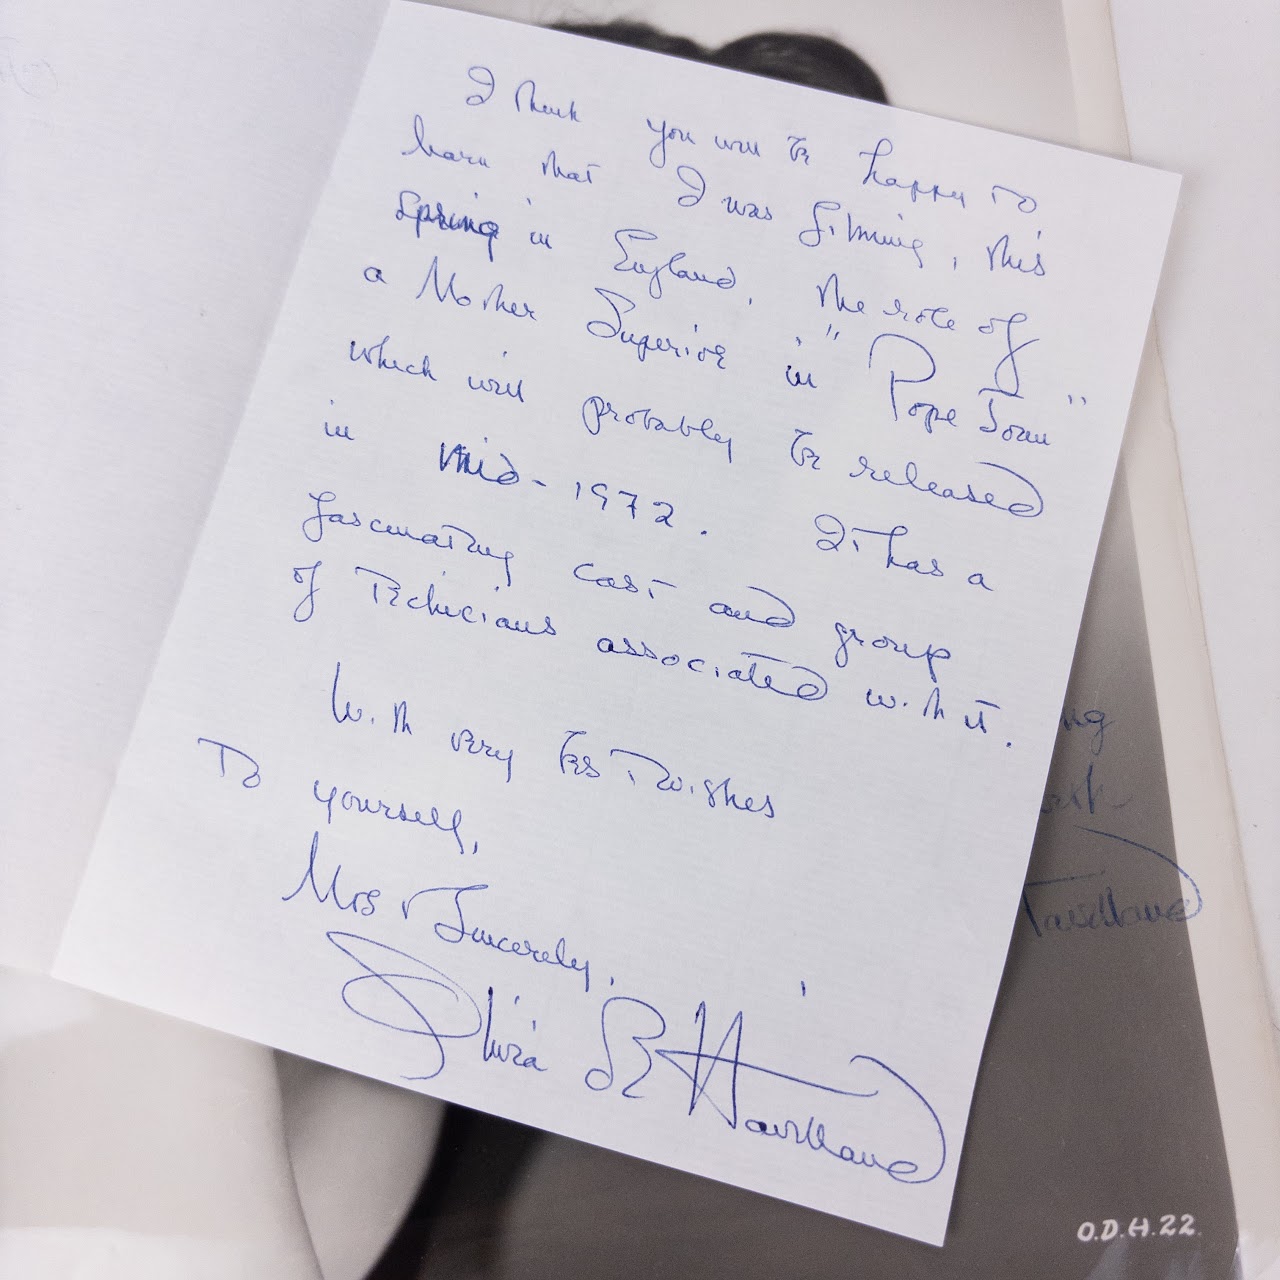 I think you will be happy to
learn that I was filming, this
Spring in England, the role of
a Mother Superior in "Pope Joan"
which will probably be released
in mid-1972. It has a
fascinating cast and group
of Technicians associated with it.
With very best wishes
To yourself,
Most Sincerely,
Olivia de Havilland
Havilland
O.D.H.22